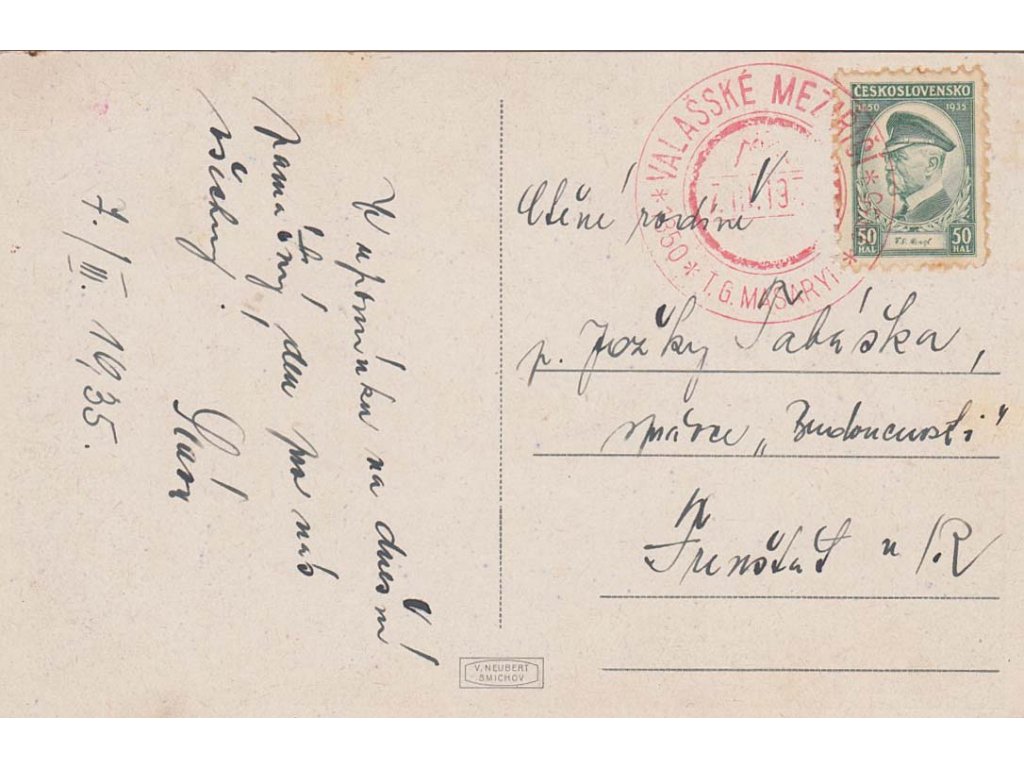 V upomínku na dnešní
památný den pro nás
všechny!
7./III. 1935.
ČESKOSLOVENSKO
1850 1935
50 HAL 50 HAL
VALAŠSKÉ MEZ
1850 * T. G. MASARYK
Ctěné rodině
p. Jožky Sabáška,
správce „Budoucnosti"
Frenštát n/R
V. NEUBERT
SMÍCHOV